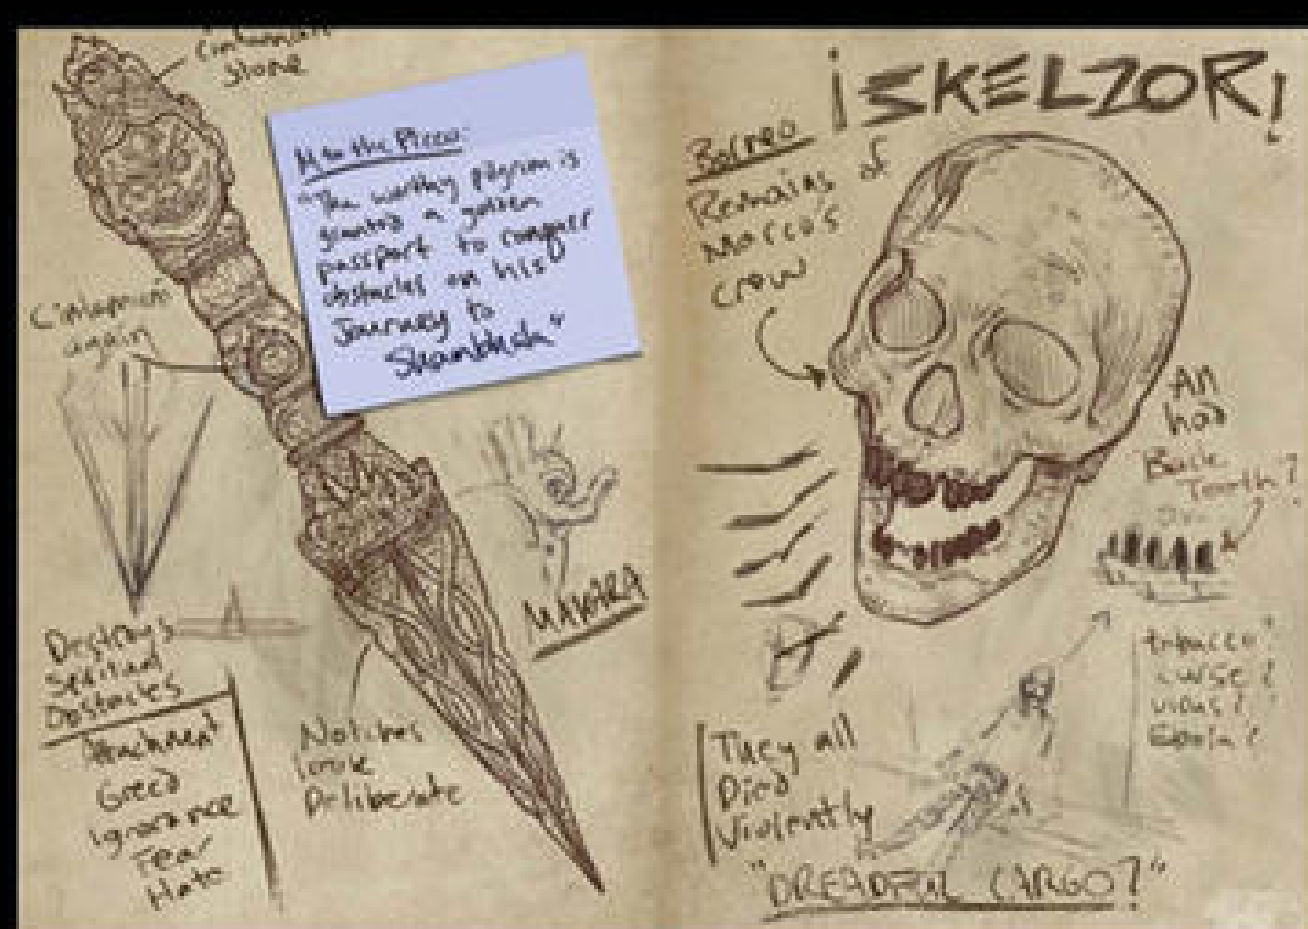 Cintamani
Stone
M to the Picco:
"The worthy pilgrim is
granted a golden
passport to conquer
obstacles on his
Journey to
Shambhala"
Cintamani
again
MAKARA
Destroys
Spiritual
Obstacles
Attachment
Greed
Ignorance
Fear
Hate
Notches
look
Deliberate
¡SKELZOR!
Borneo
Remains of
Marco's
crew
All
had
Black
Teeth?
tobacco?
curse?
virus?
Ebola?
They all
Died
Violently
"DREADFUL CARGO?"